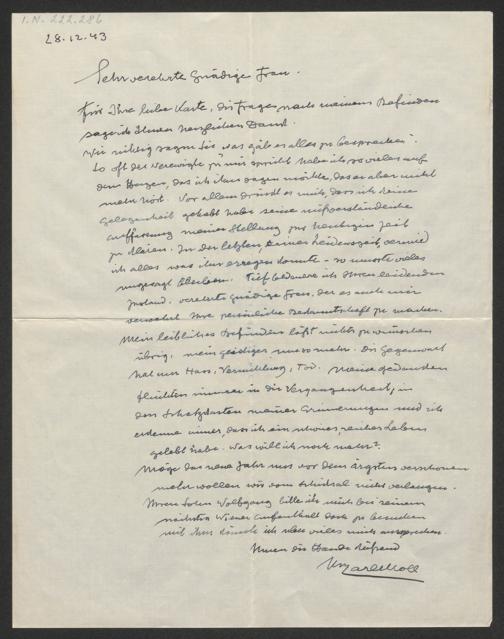 I.N. 222.286
28.12.43
Sehr verehrte gnädige Frau.
Für Ihre liebe Karte, die Frage nach meinem Befinden
sage ich Ihnen herzlichen Dank.
Wie richtig sagen Sie "was gäb es alles zu besprechen".
So oft der Verewigte zu mir spricht habe ich so vieles auf
dem Herzen, das ich ihm sagen möchte, das er aber nicht
mehr hört. Vor allem drückt es mich, dass ich keine
Gelegenheit gehabt habe seine missverständliche
Auffassung meiner Stellung zur heutigen Zeit
zu klären. In der letzten, seiner Leidenszeit, vermied
ich alles was ihn erregen konnte - so musste vieles
ungesagt bleiben. Tief bedauere ich Ihren leidenden
Zustand, verehrte gnädige Frau, der es auch mir
verwehrt Ihre persönliche Bekanntschaft zu machen.
Mein leibliches Befinden lässt nichts zu wünschen
übrig, mein geistiges umso mehr. Die Gegenwart
hat nur Hass, Vernichtung, Tod. Meine Gedanken
flüchten immer in die Vergangenheit, in
den Schatzkasten meiner Erinnerungen und ich
erkenne immer, dass ich ein schönes, reiches Leben
gelebt habe. Was will ich noch mehr?
Möge das neue Jahr uns vor dem ärgsten verschonen
mehr wollen wir vom Schicksal nicht verlangen.
Ihren Sohn Wolfgang bitte ich mich bei seinem
nächsten Wiener Aufenthalt doch zu besuchen
mit ihm könnte ich über vieles mich aussprechen.
Ihnen die Hände küssend
Ihr Carl Moll